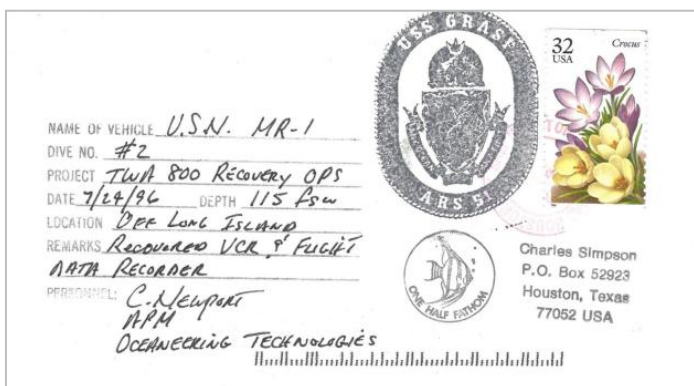 NAME OF VEHICLE U.S.N. MR-1
DIVE NO. #2
PROJECT TWA 800 RECOVERY OPS
DATE 7/24/96 DEPTH 115 fsw
LOCATION OFF LONG ISLAND
REMARKS RECOVERED VCR & FLIGHT
DATA RECORDER
PERSONNEL: C. NEWPORT
APM
OCEANEERING TECHNOLOGIES
USS GRASP
ARS 51
32
USA
Crocus
ONE HALF FATHOM
Charles Simpson
P.O. Box 52923
Houston, Texas
77052 USA